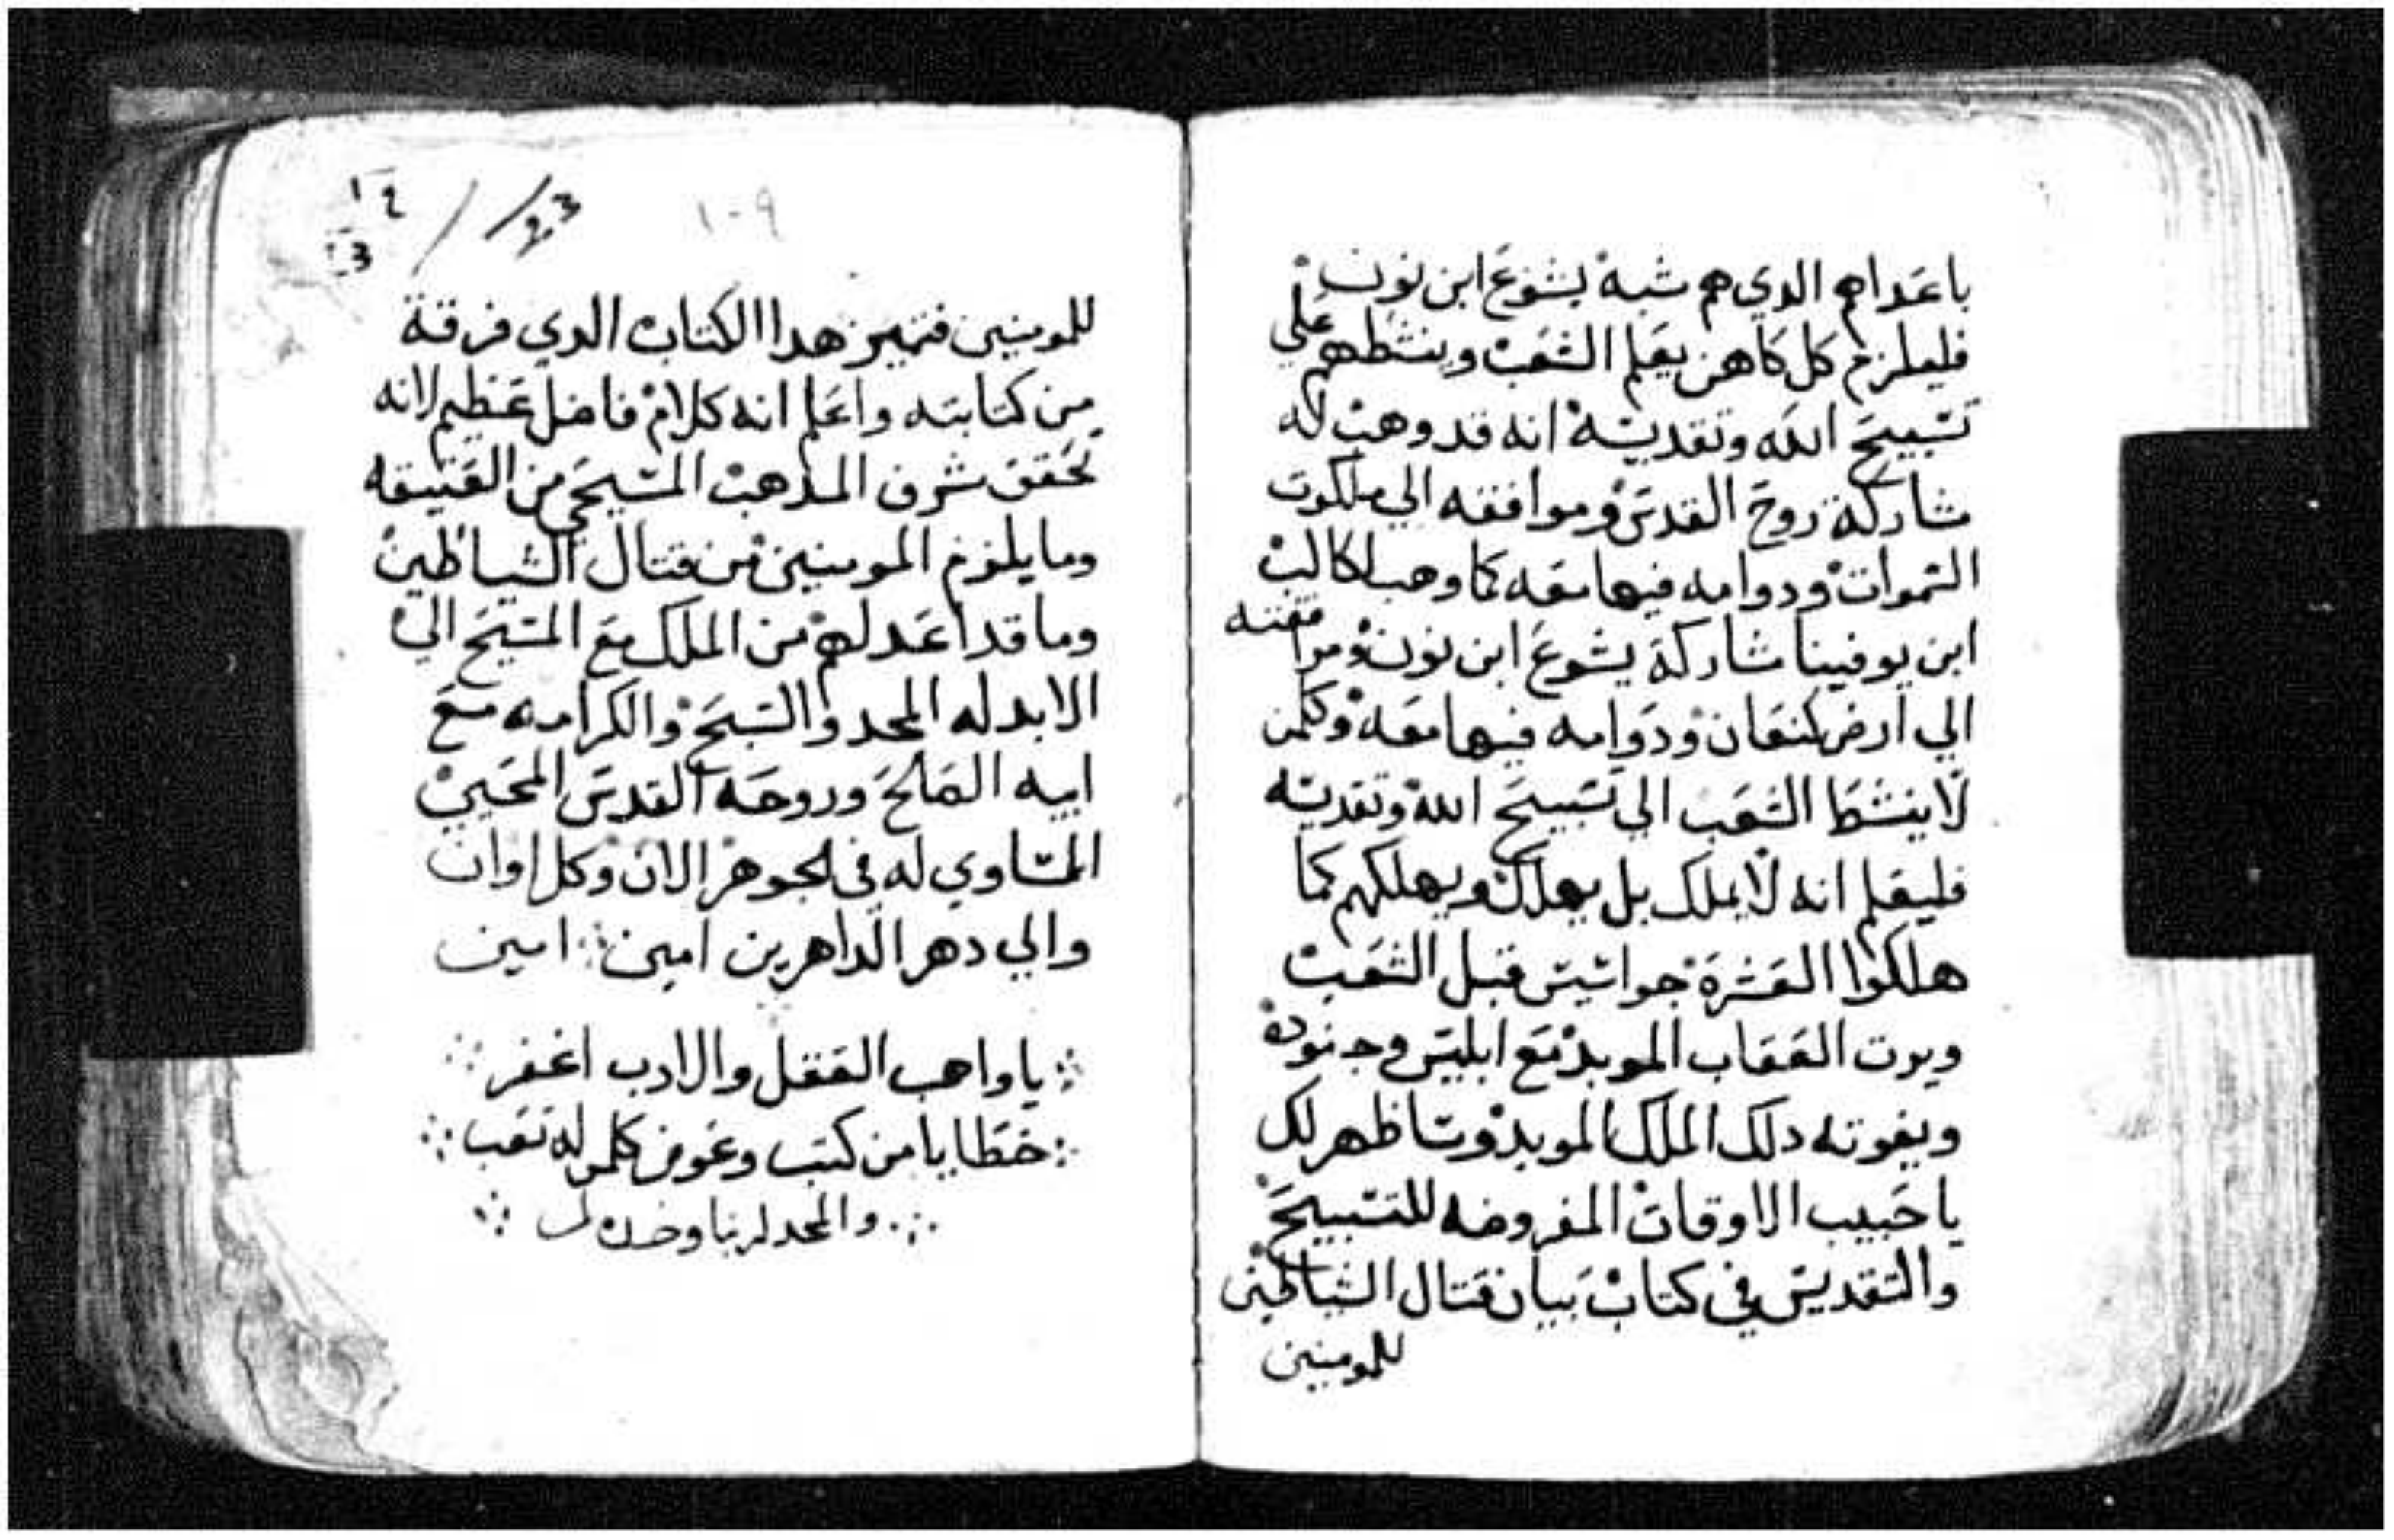 باعداهم الدي هم شبه يشوع ابن نون
فليلزم كل كاهن يعلم الشعب وينشطهم علي
تسبيح الله وتقديسه انه قد وهب له
مشاركة روح القدس وموافقه الي ملكوت
السموات ودوامه فيها معه كما وهب لكالب
ابن يوفينا مشاركة يشوع ابن نون ومرافقته
الي ارض كنعان ودوامه فيها معه وكلمن
لا ينشط الشعب الي تسبيح الله وتقديسه
فليعلم انه لا يملك بل يهلك ويهلكهم كما
هلكوا العشرة جواسيس قبل الشعب
ويرت العقاب الموبد مع ابليس وجنوده
ويفوته دلك الملك الموبد وساظهر لك
يا حبيب الاوقات المفروضه للتسبيح
والتقديس في كتاب بيان قتال الشياطين
للمومنين
١٠٩
للمومنين فتميز هدا الكتاب الدي فرقة
من كتابته واعلم انه كلام فاضل عظيم لانه
تحقق شرف المدهب المسيحي من العتيقه
وما يلزم المومنين من قتال الشياطين
وما قد اعد لهم من الملك مع المسيح الي
الابد له المجد والتسبح والكرامه مع
ابيه الصالح وروحه القدس المحيي
المساوي له في الجوهر الان وكل اوان
والي دهر الداهرين امين امين
يا واهب العقل والادب اغفر
خطايا من كتب وعوض كلمن له تعب
والمجد لربنا وحده